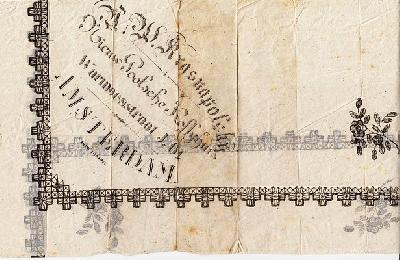 A. W. Krasnapolsky
Nieuwe Poolsche Koffijhuis
Warmoesstraat
AMSTERDAM